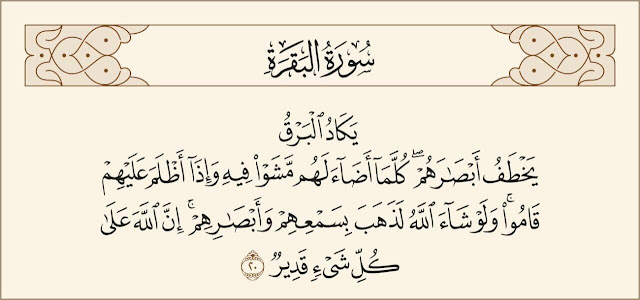 سُورَةُ البَقَرَةِ
يَكَادُ ٱلْبَرْقُ
يَخْطَفُ أَبْصَٰرَهُمْ ۖ كُلَّمَآ أَضَآءَ لَهُم مَّشَوْا۟ فِيهِ وَإِذَآ أَظْلَمَ عَلَيْهِمْ
قَامُوا۟ ۚ وَلَوْ شَآءَ ٱللَّهُ لَذَهَبَ بِسَمْعِهِمْ وَأَبْصَٰرِهِمْ ۚ إِنَّ ٱللَّهَ عَلَىٰ
كُلِّ شَىْءٍ قَدِيرٌ ٢٠